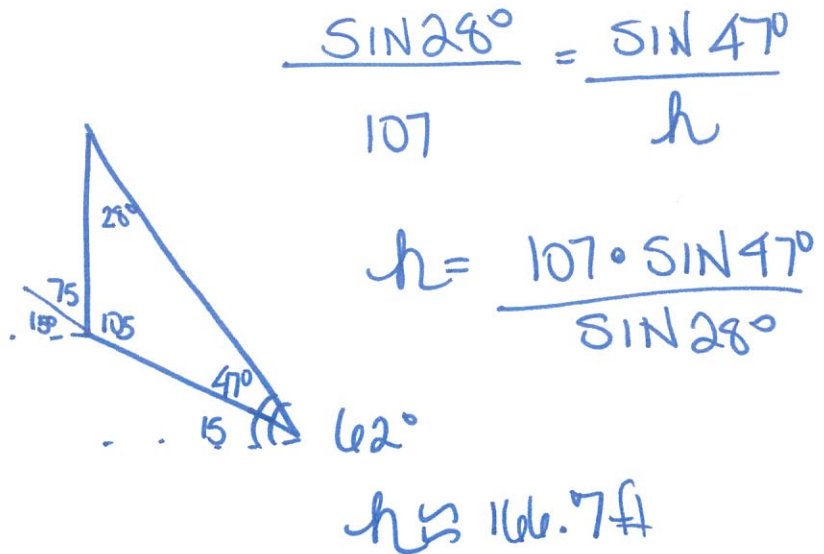 SIN28° = SIN 47°
107 h
28°
h = 107 • SIN47°
SIN28°
75
15° 105
47°
15 62°
h ≈ 166.7ft